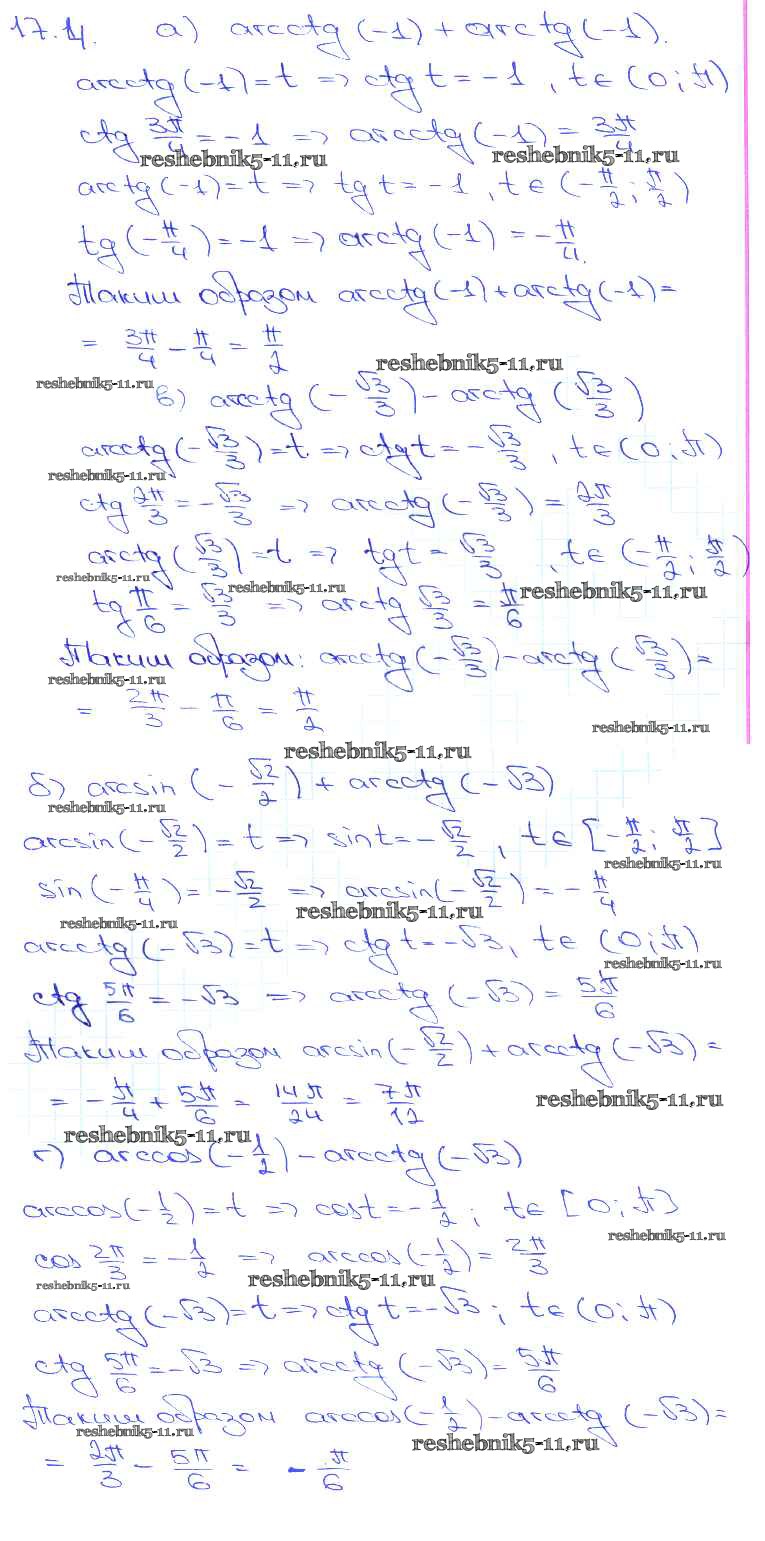 17.14. а) arcctg (-1) + arctg (-1).
arcctg (-1) = t => ctg t = -1, t ∈ (0; π)
ctg 3π/4 = -1 => arcctg (-1) = 3π/4
reshebnik5-11.ru reshebnik5-11.ru
arctg (-1) = t => tg t = -1, t ∈ (-π/2; π/2)
tg (-π/4) = -1 => arctg (-1) = -π/4.
Таким образом arcctg (-1) + arctg (-1) =
= 3π/4 - π/4 = π/2
reshebnik5-11.ru
reshebnik5-11.ru
в) arcctg (-√3/3) - arctg (√3/3)
arcctg (-√3/3) = t. => ctg t = -√3/3, t ∈ (0; π)
reshebnik5-11.ru
ctg 2π/3 = -√3/3 => arcctg (-√3/3) = 2π/3
arctg (√3/3) = t. => tg t = √3/3, t ∈ (-π/2; π/2)
reshebnik5-11.ru reshebnik5-11.ru reshebnik5-11.ru
tg π/6 = √3/3 => arctg √3/3 = π/6
Таким образом: arcctg (-√3/3) - arctg (√3/3) =
reshebnik5-11.ru
= 2π/3 - π/6 = π/2
reshebnik5-11.ru
reshebnik5-11.ru
б) arcsin (-√2/2) + arcctg (-√3)
reshebnik5-11.ru
arcsin (-√2/2) = t => sin t = -√2/2, t ∈ [-π/2; π/2]
reshebnik5-11.ru
sin (-π/4) = -√2/2 => arcsin (-√2/2) = -π/4
reshebnik5-11.ru reshebnik5-11.ru
arcctg (-√3) = t => ctg t = -√3, t ∈ (0; π)
reshebnik5-11.ru
ctg 5π/6 = -√3 => arcctg (-√3) = 5π/6
Таким образом arcsin (-√2/2) + arcctg (-√3) =
= -π/4 + 5π/6 = 14π/24 = 7π/12
reshebnik5-11.ru
reshebnik5-11.ru
г) arccos (-1/2) - arcctg (-√3)
arccos (-1/2) = t => cos t = -1/2; t ∈ [0; π]
reshebnik5-11.ru
cos 2π/3 = -1/2 => arccos (-1/2) = 2π/3
reshebnik5-11.ru reshebnik5-11.ru
arcctg (-√3) = t => ctg t = -√3; t ∈ (0; π)
ctg 5π/6 = -√3 => arcctg (-√3) = 5π/6
Таким образом arccos (-1/2) - arcctg (-√3) =
reshebnik5-11.ru reshebnik5-11.ru
= 2π/3 - 5π/6 = -π/6